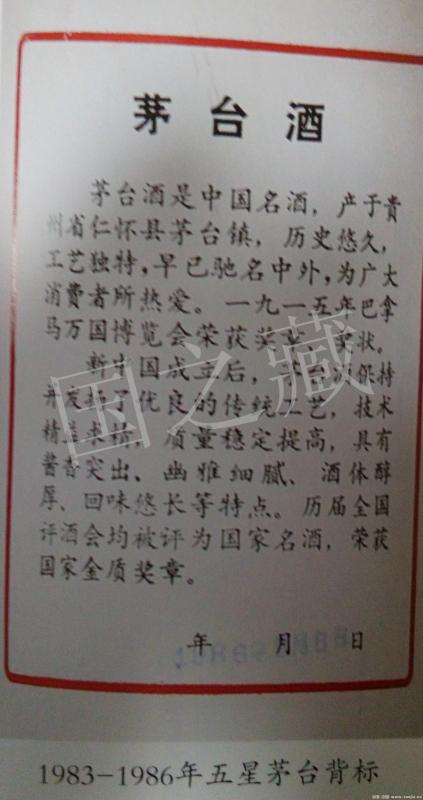 茅台酒
茅台酒是中国名酒，产于贵
州省仁怀县茅台镇，历史悠久，
工艺独特，早已驰名中外，为广大
消费者所热爱。一九一五年巴拿
马万国博览会荣获奖章、奖状。
新中国成立后，茅台酒保持
并发扬了优良的传统工艺，技术
精益求精，质量稳定提高，具有
酱香突出、幽雅细腻、酒体醇
厚、回味悠长等特点。历届全国
评酒会均被评为国家名酒，荣获
国家金质奖章。
年 月 日
国之藏
1983-1986年五星茅台背标